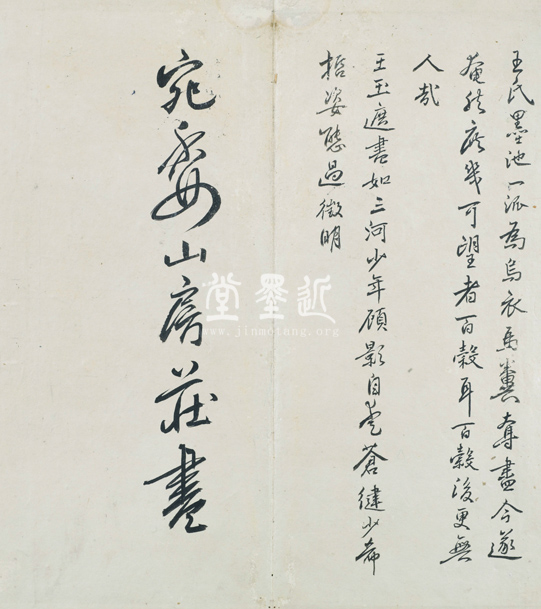 王氏墨池一派為烏衣馬糞奪盡今遂
奄然庶幾可望者百穀耳百穀後更無
人哉
王玉遮書如三河少年顧影自愛蒼健少希
哲姿態過徵明
宛委山房莊書
近墨堂
www.jinmotang.org